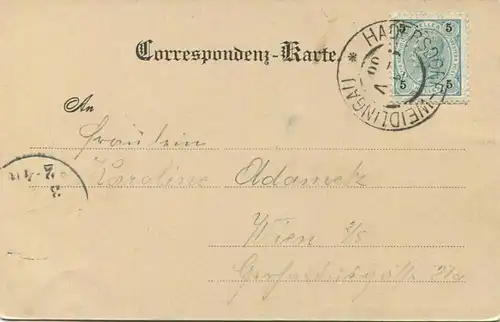 Correspondenz-Karte.
HADERSDORF-WEIDLINGAU *
5 5
5 5
An
Fräulein
Karoline Adametz
Wien